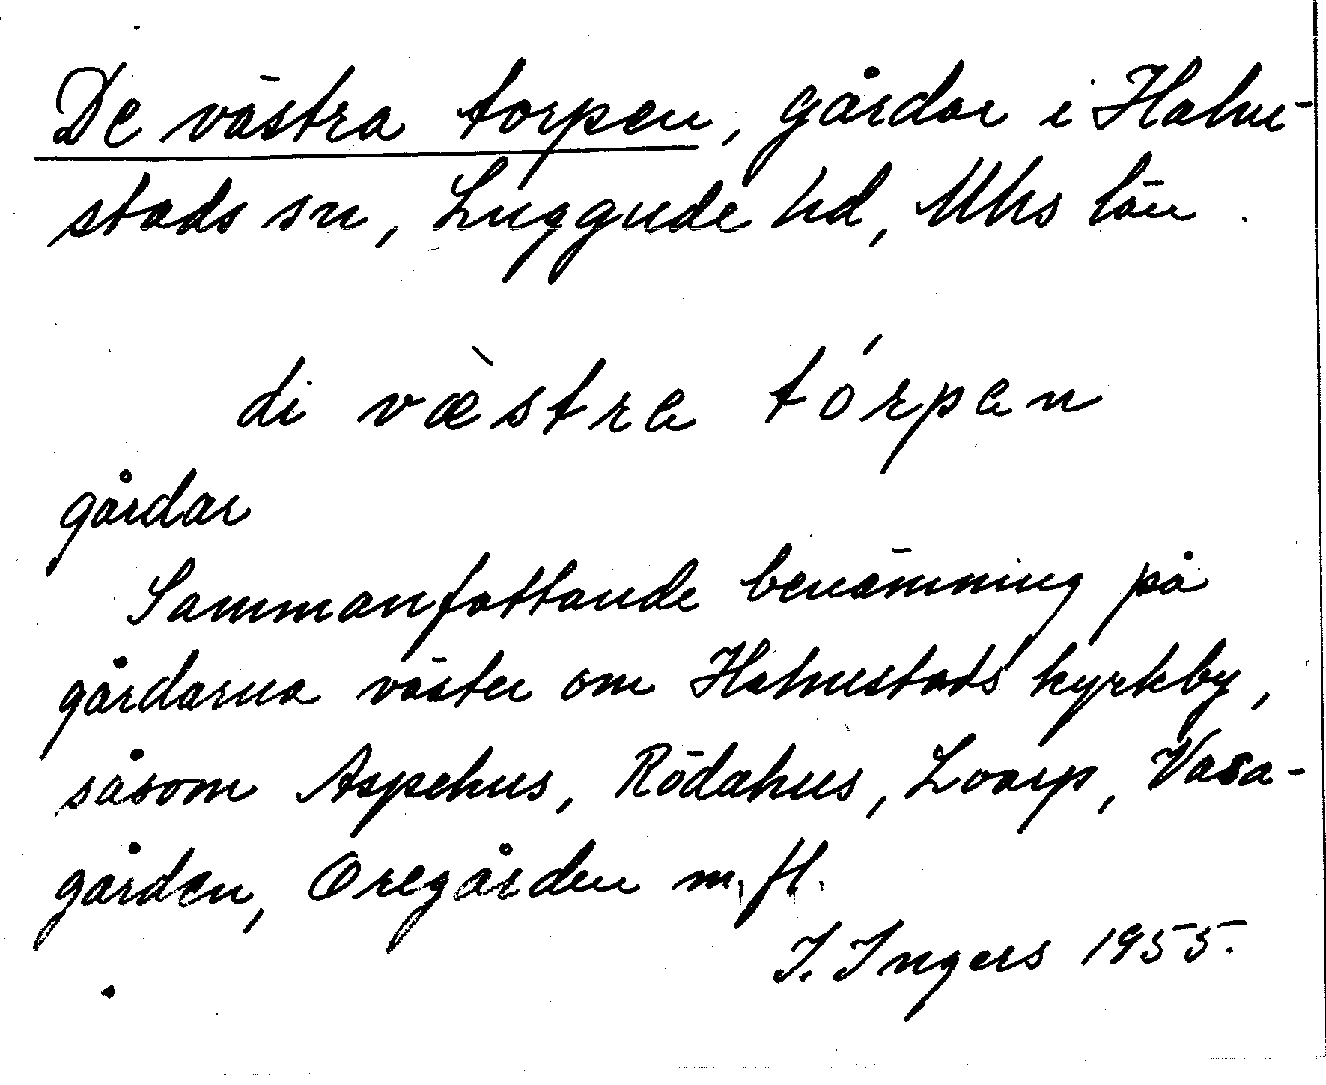 De västra torpen, gårdar i Halm-
stads sn, Luggude hd, Mhs län.
di væ̀stra tórpen
gårdar
Sammanfattande benämning på
gårdarna väster om Halmstads kyrkby,
såsom Aspehus, Rödahus, Loarp, Vasa-
gården, Oregården m. fl.
I. Ingers 1955.